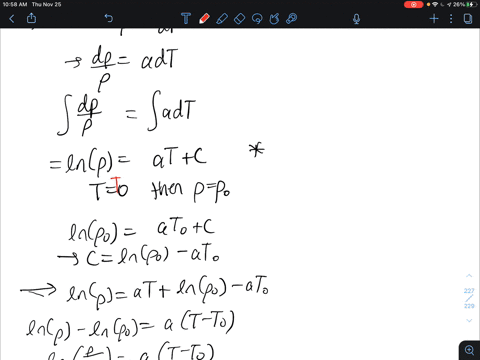 10:58 AM Thu Nov 25
26%
→ dρ/ρ = adT
∫ dρ/ρ = ∫ adT
= ln(ρ) = aT + C *
T=T0 then ρ=ρ0
ln(ρ0) = aT0 + C
→ C = ln(ρ0) - aT0
⟹ ln(ρ) = aT + ln(ρ0) - aT0
ln(ρ) - ln(ρ0) = a(T-T0)
= a(T-T0)
227
/
229